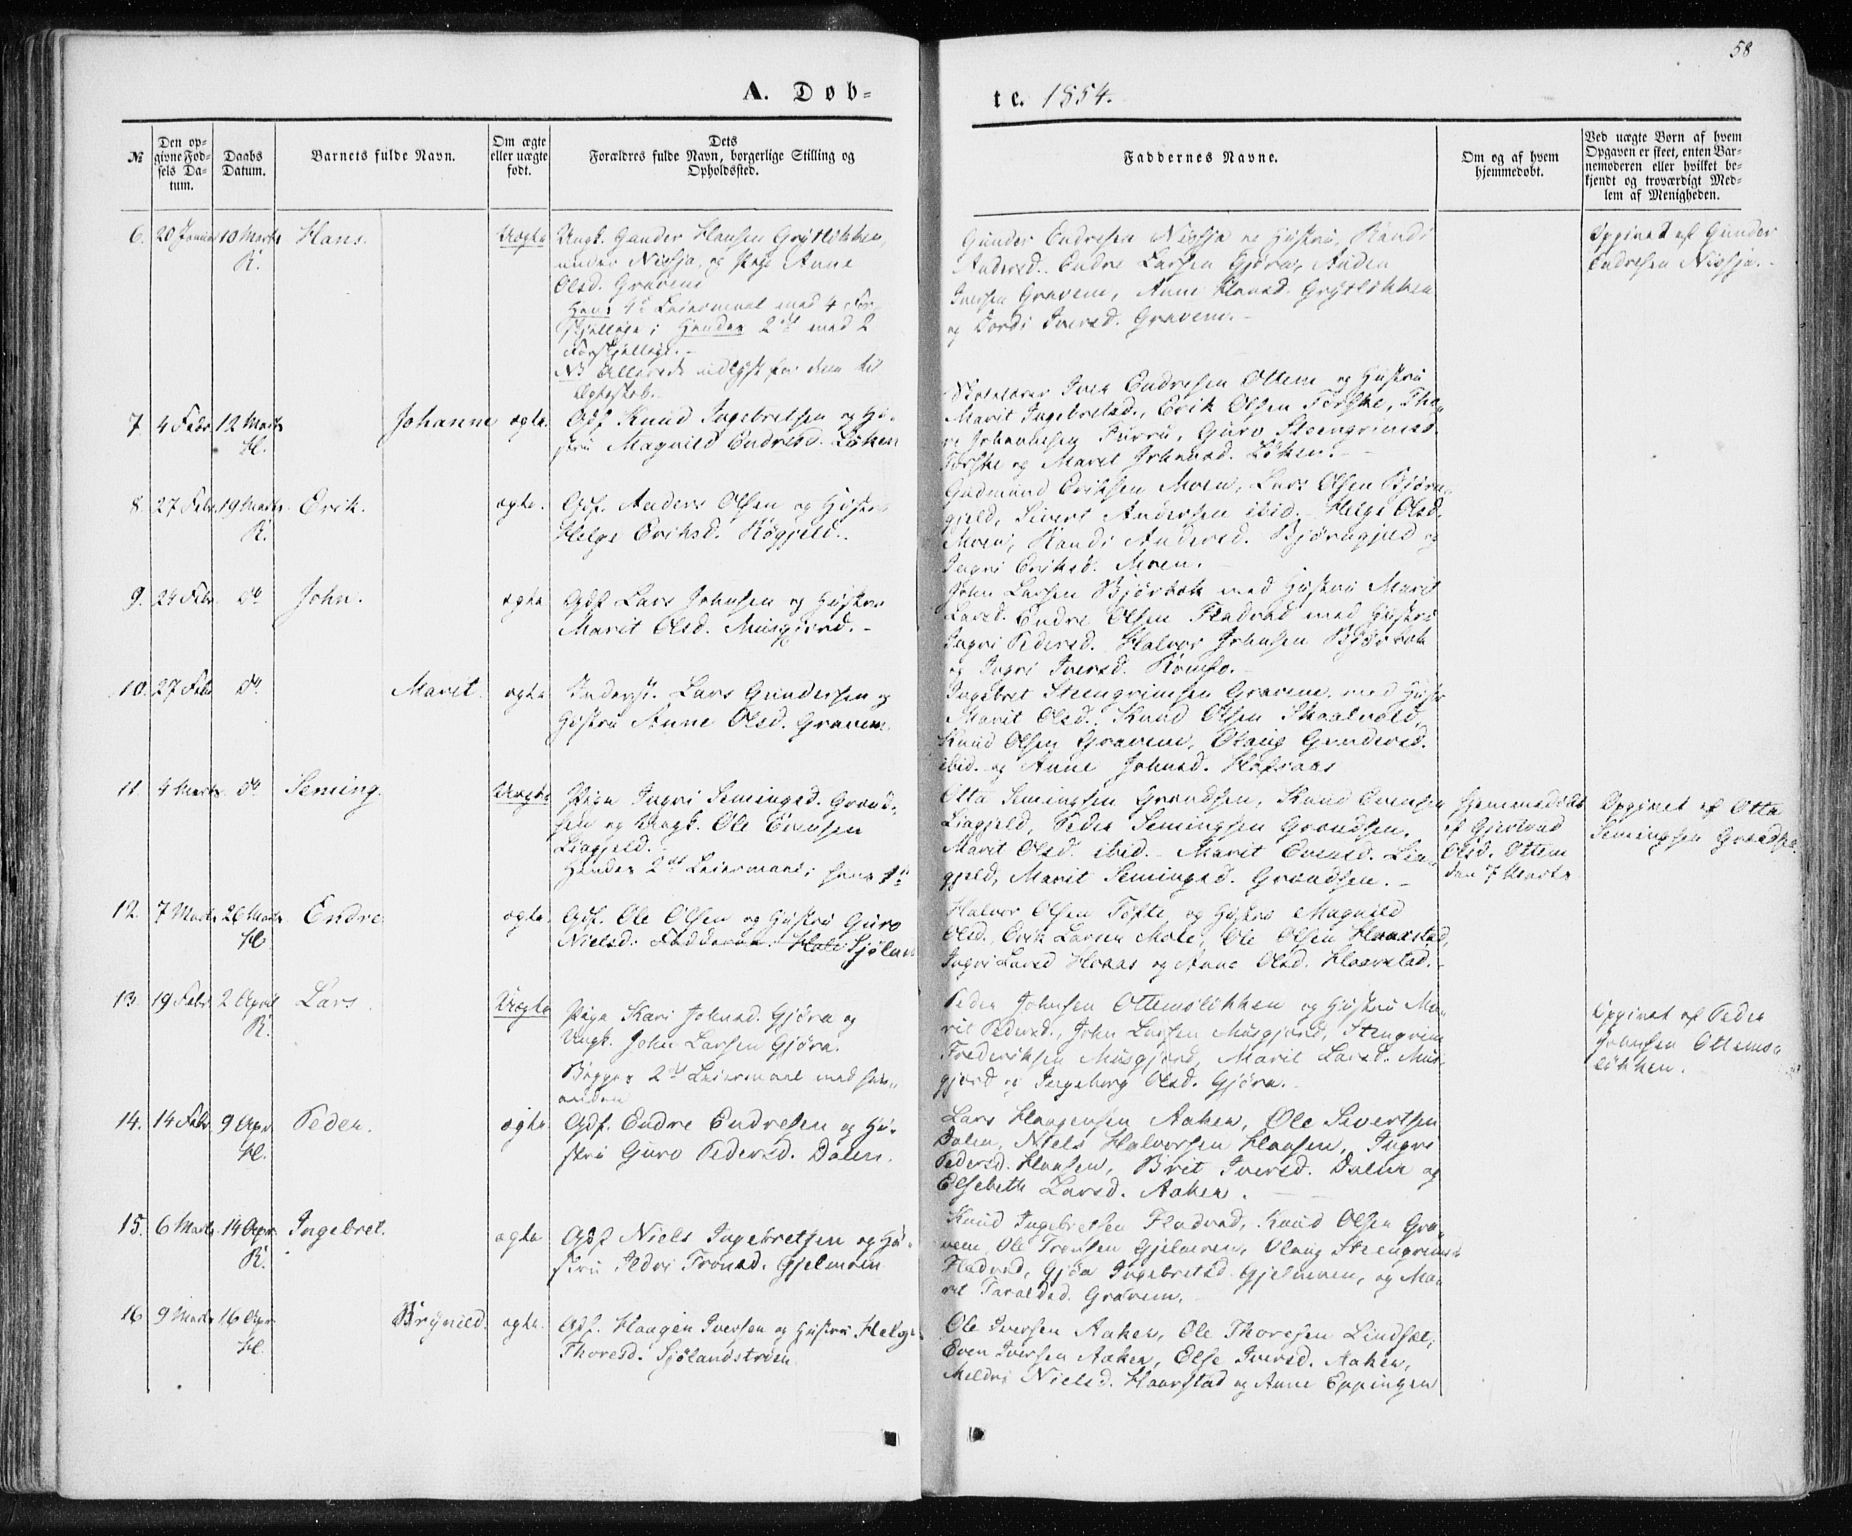 58
A. Døb-
te. 1854.
№
Den op-
givne Fød-
sels Da-
tum.
Daabs
Datum.
Barnets fulde Navn.
Om ægte
eller uægte
født.
Dets
Forældres fulde Navn, borgerlige Stilling og
Opholdssted.
Faddernes Navne.
Om og af hvem
hjemmedøbt.
Ved uægte Børn af hvem
Opgaven er skeet, enten Bar-
nemoderen eller hvilket be-
kjendt og troværdigt Med-
lem af Menigheden.
6. 20 Januar 10 Marts Hans. Uægte Ungk. Gunder Hansen Grytløkken,
R.
under Nisja, og Pige Anne
Olsd. Gravem
Hans 4de Leiermaal med 4 For-
skjellige; Hendes 2det med 2
Forskjellige.
NB Allerede udlyst for dem til
Ægteskab.
Gunder Endresen Nisja og Hustru, Randi
Andersd. Endre Larsen Gjøra, Anden
Iversen Gravem, Anne Hansd. Grytløkken
og Dordi Iversd. Gravem.
Opgivet af Gunder
Endresen Nisja.
7. 4 Febr 12 Marts Johanne ægte. Gdf Knud Ingebretsen og Hu-
H.
stru Magnild Endresd. Løken
Iver Endresen Ottem og Hustru
Marit Ingebretsd., Erik Olsen Forske, Tho-
re Johannesen Furru, Guro Steengrimsd.
Forske og Marit Johnsd. Løken.
8. 27 Febr 19 Marts Erik. ægte. Gdf. Anders Olsen og Hustru
R.
Helge Eriksd. Røggjeld.
Gudmund Eriksen Moen, Lars Olsen Bjørn-
gjeld, Sivert Andersen ibid. Helge Olsd.
Moen, Randi Andersd. Bjørngjeld og
Ingri Eriksd. Moen.
9. 24 Febr do. John. ægte Gdf Lars Johnsen og Hustru
Marit Olsd. Musgjerd.
John Larsen Bjørbæk med Hustru Marit
Larsd. Endre Olsen Fladvad med Hustru
Ingri Pedersd. Halvor Johnsen Bjørbæk
og Ingri Iversd. Romfo.
10. 27 Febr do. Marit. ægte Inderst. Lars Gundersen og
Hustru Anne Olsd. Gravem.
Ingebret Steengrimsen Gravem med Hustr.
Marit Olsd. Knud Olsen Skaalvold,
Knud Olsen Gravem, Olaug Gundersd.
ibid. og Anne Johnsd. Hafsaas
11. 4 Marts do. Seming. Uægte Pige Ingri Semingsd. Grønd-
sen og Ungk. Ole Evensen
Liagjeld.
Hendes 2det Leiermaal; hans 1ste
Otto Semingsen Grøndsen, Knud Evensen
Liagjeld, Peder Semingsen Grøndsen.
Marit Olsd. ibid. Marit Evensd. Lia-
gjeld, Marit Semingsd. Grøndsen.
Hjemmedøbt
af Gjertrud
Olsd. Ottem
den 7 Marts
Opgivet af Otto
Semingsen Grøndsen.
12. 7 Marts 26 Marts Endre ægte. Gdf. Ole Olsen og Hustru Guro
H.
Nielsd. Sjølan
Halvor Olsen Tofte og Hustru Magnild
Olsd., Erik Larsen Mole, Ole Olsen Haarstad,
Ingri Larsd Hoaas og Anne Olsd. Haarstad.
13. 19 Febr 2 April Lars. Uægte Pige Kari Johnsd. Gjøra og
R.
Ungk. John Larsen Gjøra.
Begges 2det Leiermaal med hin-
anden
Peder Johnsen Ottemsløkken og Hustru Ma-
rit Pedersd., John Larsen Musgjerd, Stengrim
Frederiksen Musgjerd, Marit Larsd. Mus-
gjerd og Ingeborg Olsd. Gjøra.
Opgivet af Peder
Johnsen Ottems-
løkken.
14. 14 Febr. 9 Apr. Peder. ægte. Gdf. Endre Endresen og Hu-
H.
stru Guro Pedersd. Dalen.
Lars Haagensen Aaken, Ole Sivertsen
Dalen, Niels Halvorsen Hansen, Ingri
Pedersd. Hansen, Brit Iversd. Dalen og
Elsebeth Larsd. Aaken.
15. 6 Marts 14 Apr. Ingebret. ægte Gdf Niels Ingebretsen og Hu-
R.
stru Ildri Tronsd. Gjelmoen
Knud Ingebretsen Fladvad, Knud Olsen Gra-
vem, Ole Tronsen Gjelmoen, Olaug Steengrimsd.
Fladvad, Gjøa Ingebretsd. Gjelmoen, og Ma-
rit Taraldsd. Gravem.
16 9 Marts 16 Apr Brynild. ægte. Gdf. Haagen Iversen og Hustru Helge
H.
Thoresd. Sjølandstrøen.
Ole Iversen Aaken, Ole Thoresen Lindset,
Even Iversen Aaken, Else Iversd. Aaken,
Mildri Nielsd. Haarstad og Anne Eppingen